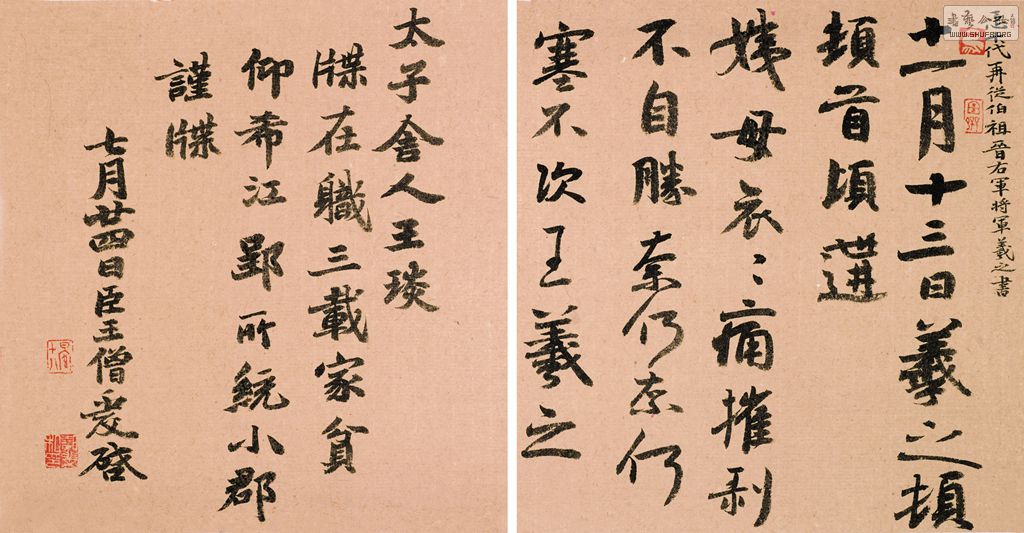 WWW.SHUFA.ORG
代再從伯祖晉右軍将軍羲之書
十一月十三日羲之頓
頓首頃遘
姨母哀〻痛摧剥
不自勝奈何奈何
塞不次王羲之
太子舍人王琰
牒在職三載家貧
仰希江郢所統小郡
謹牒
七月廿四日臣王僧虔啓